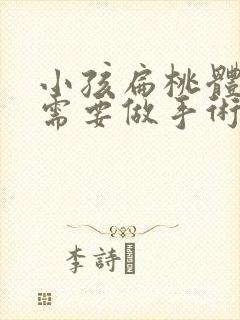 小孩扁桃體
需要做手術
李詩